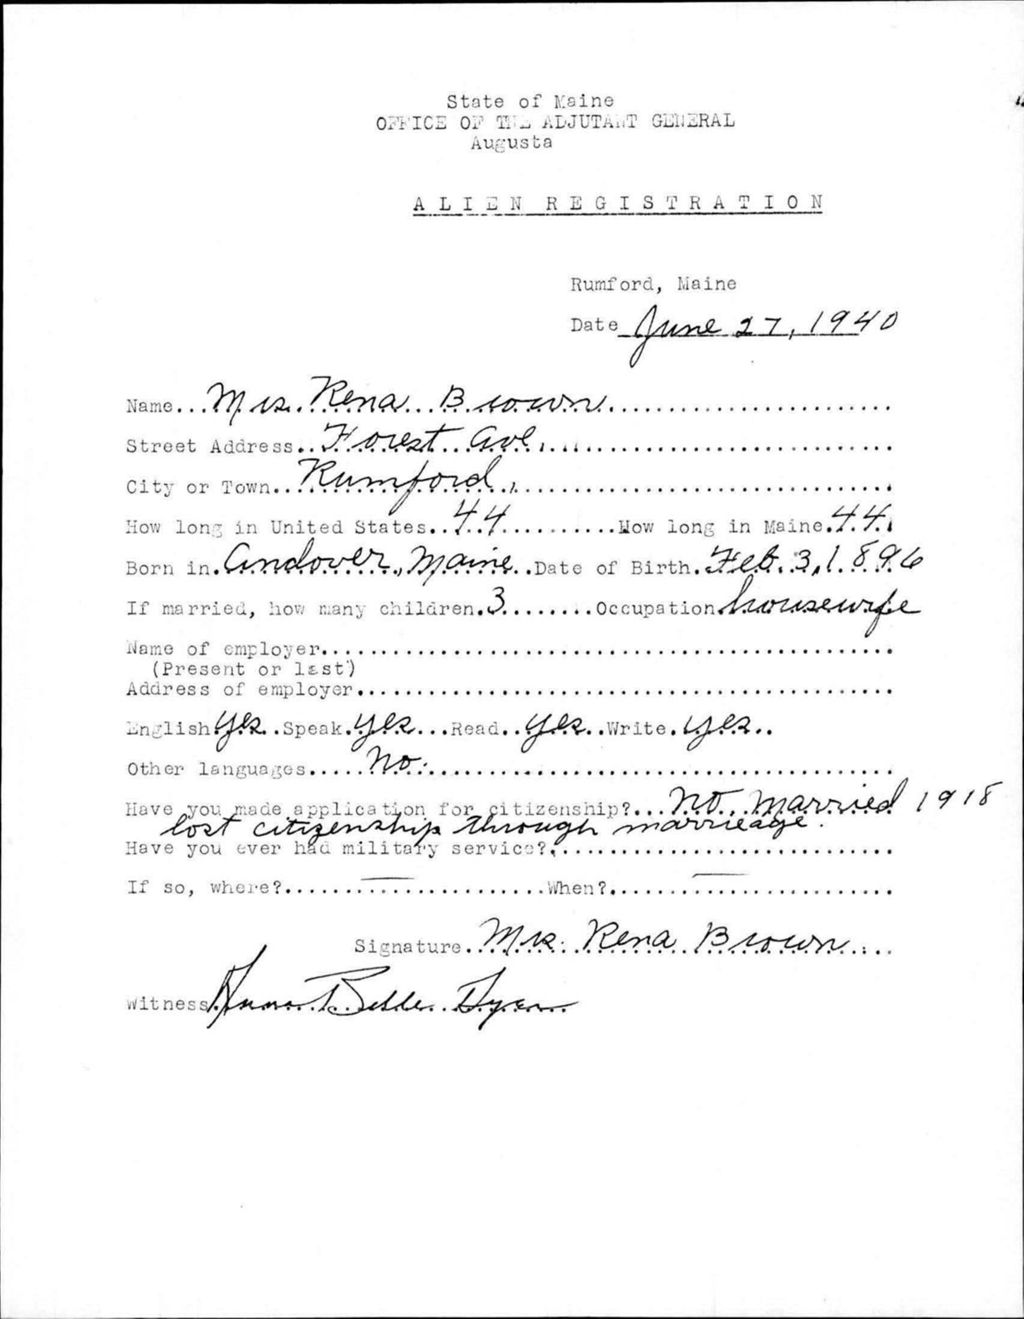 State of Maine
OFFICE OF THE ADJUTANT GENERAL
Augusta
ALIEN REGISTRATION
Rumford, Maine
Date June 27, 1940
Name...Mrs. Rena Brown
Street Address..Forest Ave.
City or Town..Rumford,
How long in United States..44..........How long in Maine.44.
Born in.Andover, Maine..Date of Birth.Feb. 3, 1896
If married, how many children.3.......Occupation housewife
Name of employer
(Present or last)
Address of employer
English yes..Speak.yes...Read..yes..Write.yes..
Other languages.....No.
Have you made application for citizenship?...No...Married 1918
lost citizenship through marrieage.
Have you ever had military service?
If so, where?.......................When?
Signature..Mrs. Rena Brown
Witness Anna Belle Dyer